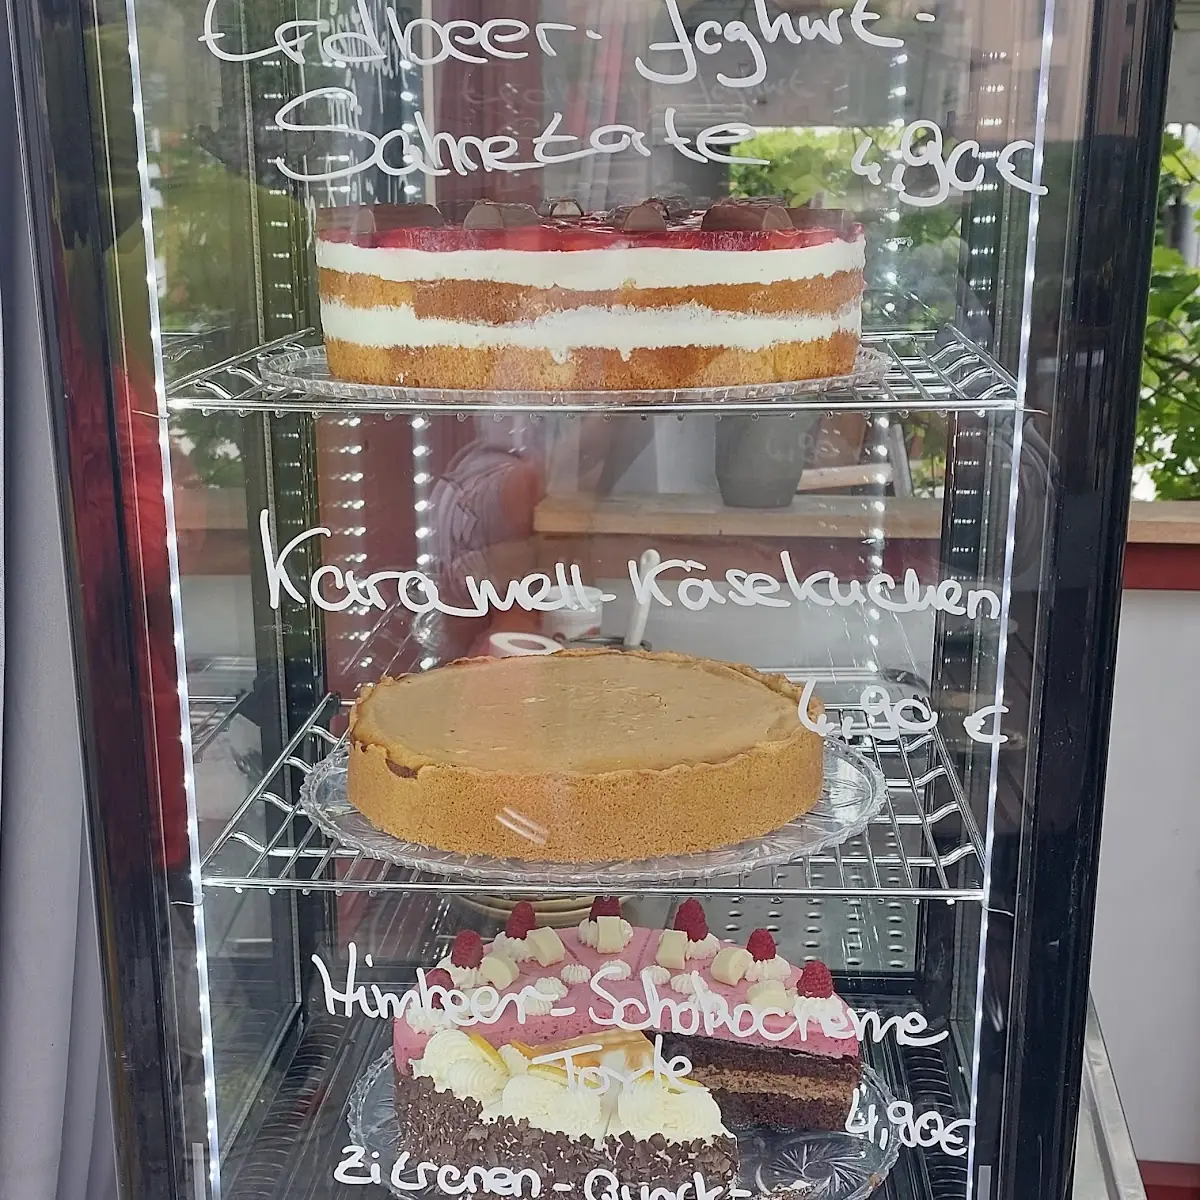 Erdbeer-Joghurt-
Sahnetorte 4,90€
Karamell-Käsekuchen
4,90 €
Himbeer-Schokocreme
Torte
4,90€
Zitronen-Quark-